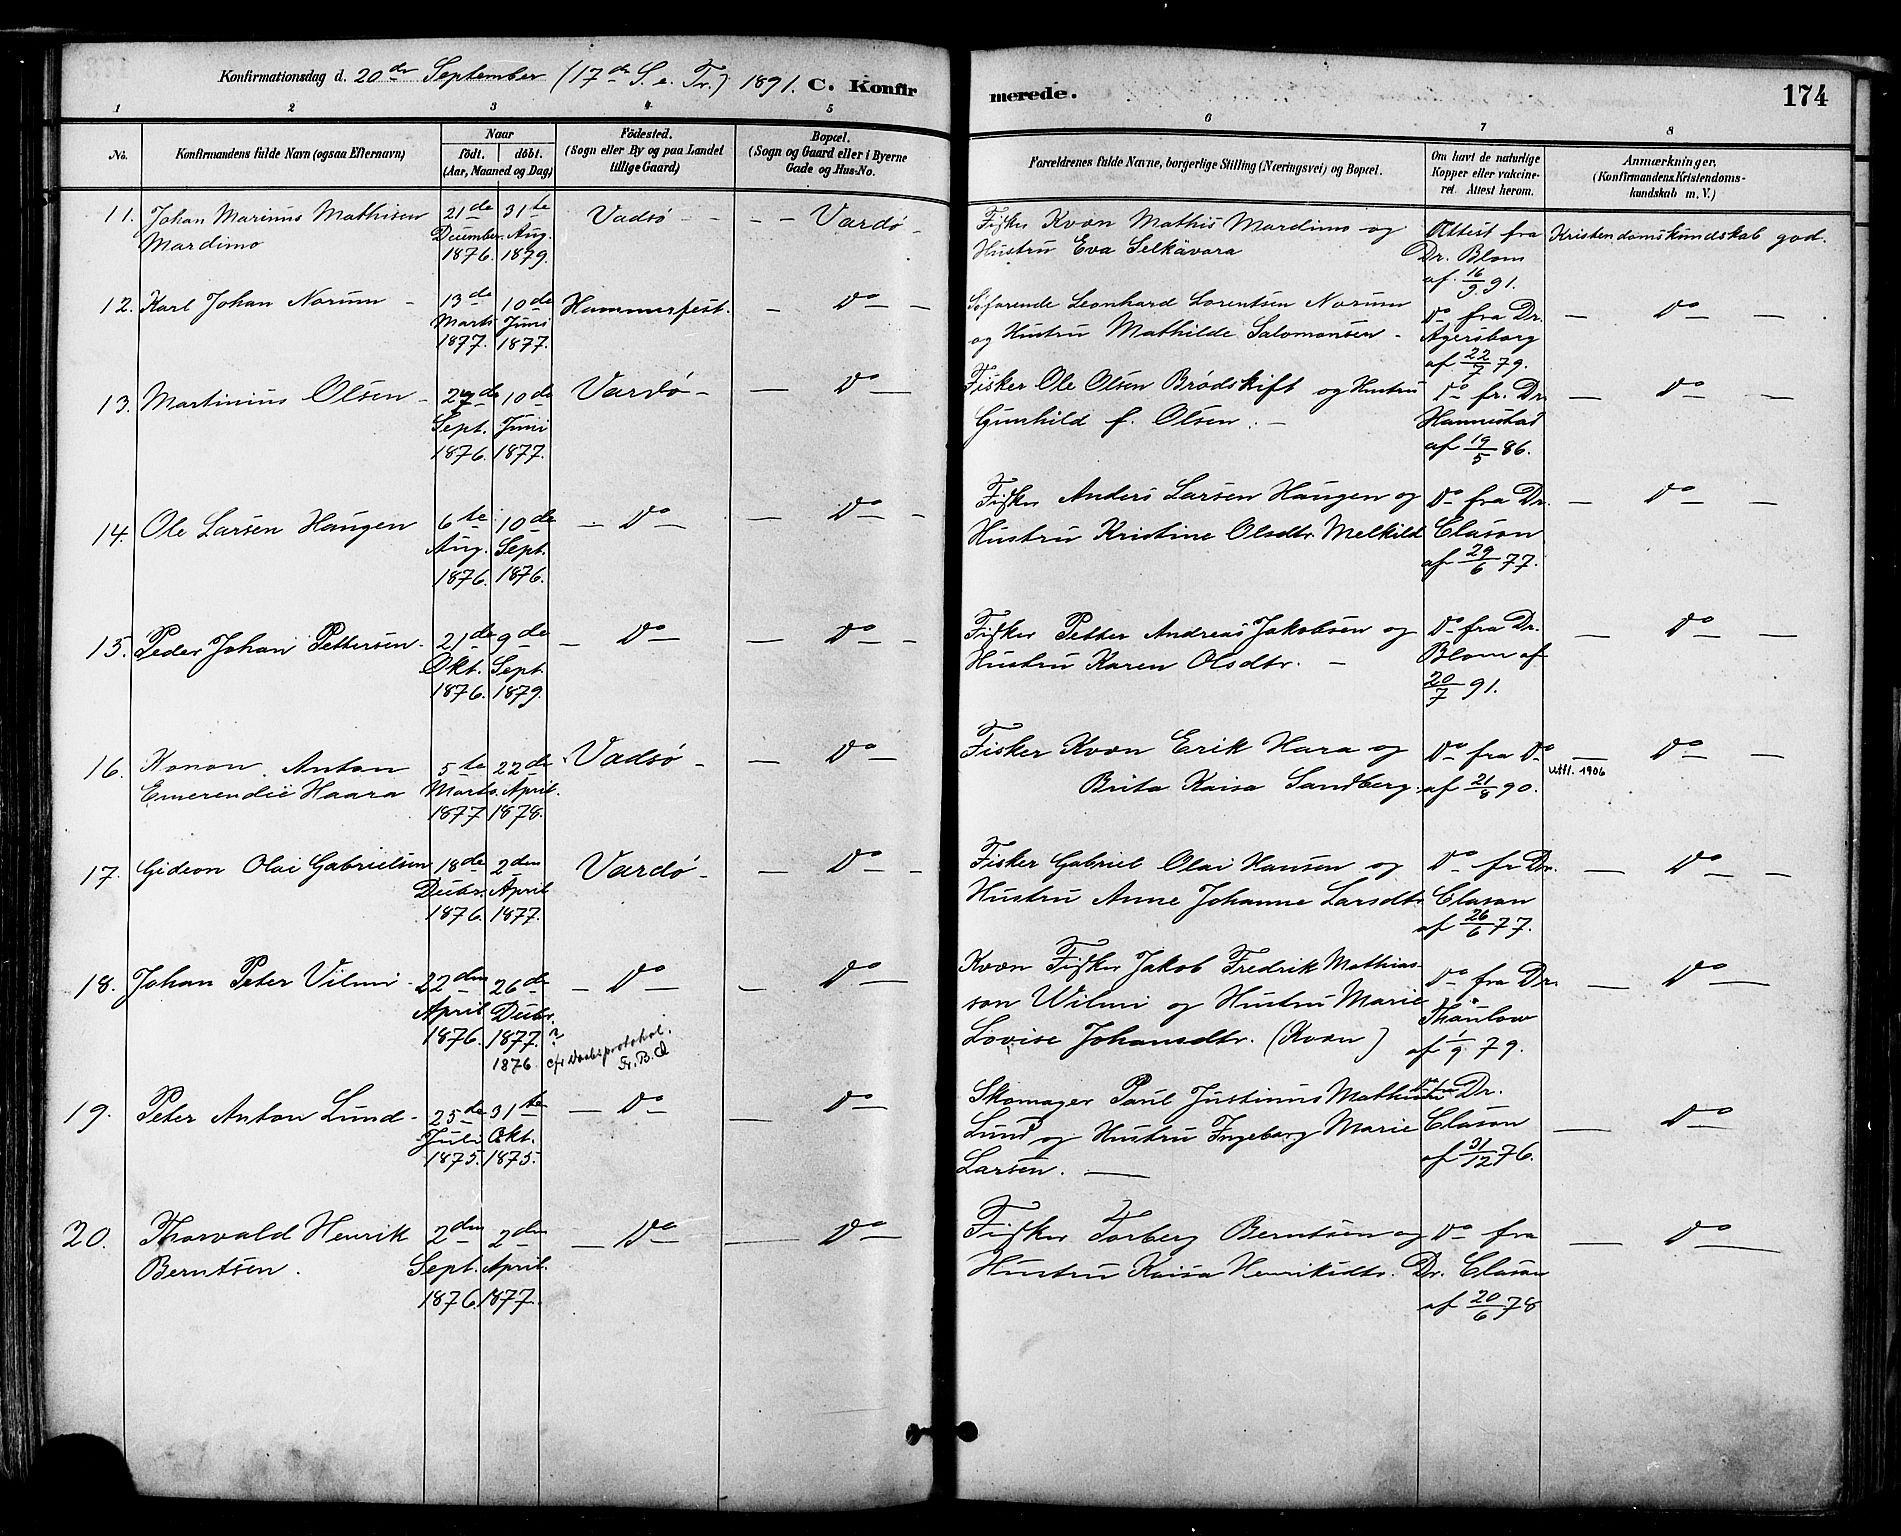 Konfirmationsdag d. 20de September (17de S. e. Tr.) 1891. C. Konfir
merede.
174
1 2 3 4 5
6 7 8
No. Konfirmandens fulde Navn (ogsaa Efternavn) Naar födt. döbt. (Aar, Maaned og Dag) Födested. (Sogn eller By og paa Landet tillige Gaard) Bopæl. (Sogn og Gaard eller i Byerne Gade og Hus-No.
Forældrenes fulde Navne, borgerlige Stilling (Næringsvei) og Bopæl. Om havt de naturlige Kopper eller vakcineret. Attest herom. Anmærkninger. (Konfirmandens Kristendomskundskab m. V.)
11. Johan Marinus Mathisen 21de 31te Vadsø - - - - Vardø -
Mardimo December Aug.
1876. 1879.
Fisker Kvæn Mathis Mardimo og Attest fra Kristendomskundskab god.
Hustru Eva Selkävara Dr. Blom
af 16/9 91.
12. Karl Johan Norum - 13de 10de Hammerfest. - Do -
Marts Juni
1877. 1877.
Søfarende Leonhard Lorentsen Norum Do fra Dr. - Do -
og Hustru Mathilde Salomonsen - Agersborg
af 22/7 79.
13. Martinius Olsen - 27de 10de Vardø - - Do -
Sept. Juni
1876. 1877.
Fisker Ole Olsen Brødskift og Hustru Do fr. Dr. - Do -
Gunhild f. Olsen. - Hannestad
af 19/5 86.
14. Ole Larsen Haugen 6te 10de - Do - - Do -
Aug. Sept.
1876. 1876.
Fisker Anders Larsen Haugen og Do fra Dr. - Do -
Hustru Kristine Olsdtr. Melkild Clason
af 29/6 77.
15. Peder Johan Pettersen - 21de 9de - Do - - Do -
Okt. Sept.
1876. 1879.
Fisker Petter Andreas Jakobsen og Do fra Dr. - Do -
Hustru Karen Olsdtr. - Blom af
20/7 91.
16. Konon Anton 5te 22de Vadsø - - Do -
Emerendie Haara Marts. April.
1877 1878.
Fisker Kvæn Erik Hara og Do fra Do - Do -
Brita Kaisa Sandberg. af 21/8 90. utfl. 1906
17. Gideon Olai Gabrielsen 18de 2den Vardø - - Do -
Decbr. April
1876. 1877.
Fisker Gabriel Olai Hansen og Do fr Dr. - Do -
Hustru Anne Johanne Larsdtr Clason
af 26/6 77.
18. Johan Peter Vilmi - 22den 26de - Do - - Do -
April Decbr.
1876. 1877. ?
1876. cfr. Daabsprotokol.
Kvæn Fisker Jakob Fredrik Mathias- Do fra Dr. - Do -
son Wilmi og Hustru Marie Thaulow
Lovise Johansdtr. (Kvæn) af 1/9 79.
19. Peter Anton Lund - 25de 31te - Do - - Do -
Juli Okt.
1875. 1875.
Skomager Paul Justinus Mathias Dr.
Lund og Hustru Ingeborg Marie Clason - Do -
Larsen. - af 31/12 76.
20. Thorvald Henrik 2den 2den - Do - - Do -
Berntsen. Sept. April.
1876. 1877.
Fisker Torberg Berntsen og Do fra - Do -
Hustru Kaisa Henriksdtr. Dr. Clason
af 20/6 78